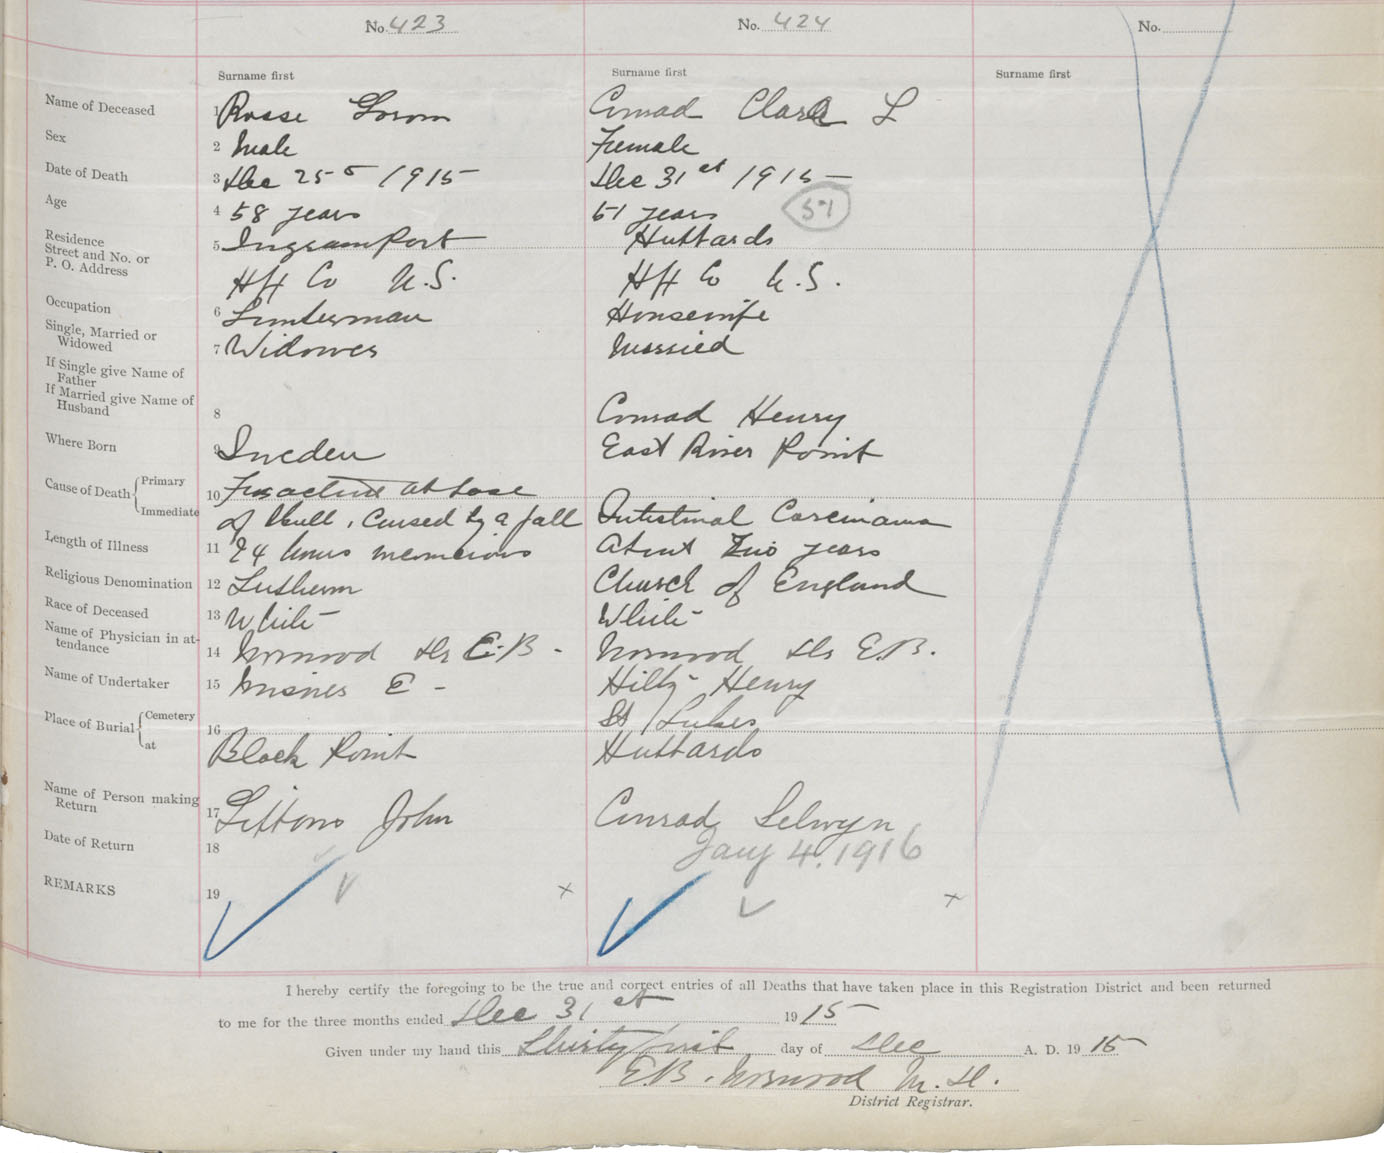 No. 423
No. 424
No.
Surname first
Surname first
Surname first
Name of Deceased 1 Rosse Conrad Clara L
Sex 2 Male Female
Date of Death 3 Dec 25 1915 Dec 31st 1915
Age 4 58 years 51 years 51
Residence Street and No. or P. O. Address 5 Ingramport Hubbards
Hfx Co N.S. Hfx Co N.S.
Occupation 6 Lumberman Housewife
Single, Married or Widowed 7 Widower Married
If Single give Name of Father
If Married give Name of Husband 8 Conrad Henry
Where Born 9 Sweden East River Point
Cause of Death Primary Immediate 10 Fracture at base
of skull, caused by a fall Intestinal Carcinama
Length of Illness 11 24 hours About Two years
Religious Denomination 12 Lutheran Church of England
Race of Deceased 13 White White
Name of Physician in attendance 14 Norwood Dr E.B. Norwood Dr E.B.
Name of Undertaker 15 E Hiltz Henry
Place of Burial Cemetery at 16 St Lukes
Black Point Hubbards
Name of Person making Return 17 John Conrad Selwyn
Date of Return 18 Jany 4. 1916
REMARKS 19
I hereby certify the foregoing to be the true and correct entries of all Deaths that have taken place in this Registration District and been returned
to me for the three months ended Dec 31st 1915
Given under my hand this Thirty first day of Dec A. D. 1915
E.B. Norwood M.D.
District Registrar.